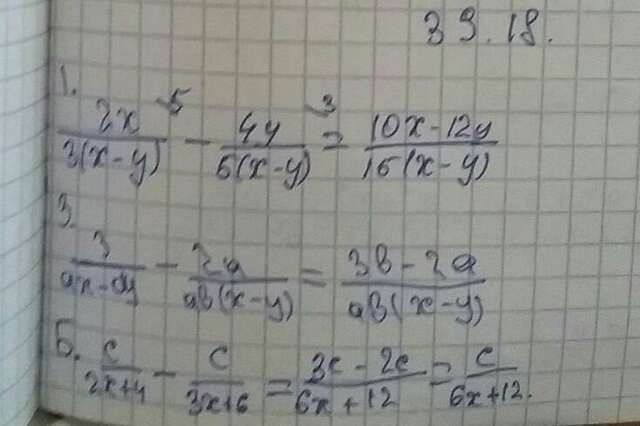 39.18.
1.
2x/3(x-y) ⌣5 - 4y/5(x-y) ⌣3 = 10x-12y/15(x-y)
3.
3/ax-ay - 2a/ab(x-y) = 3b-2a/ab(x-y)
5. c/2x+4 - c/3x+6 = 3c-2c/6x+12 = c/6x+12.